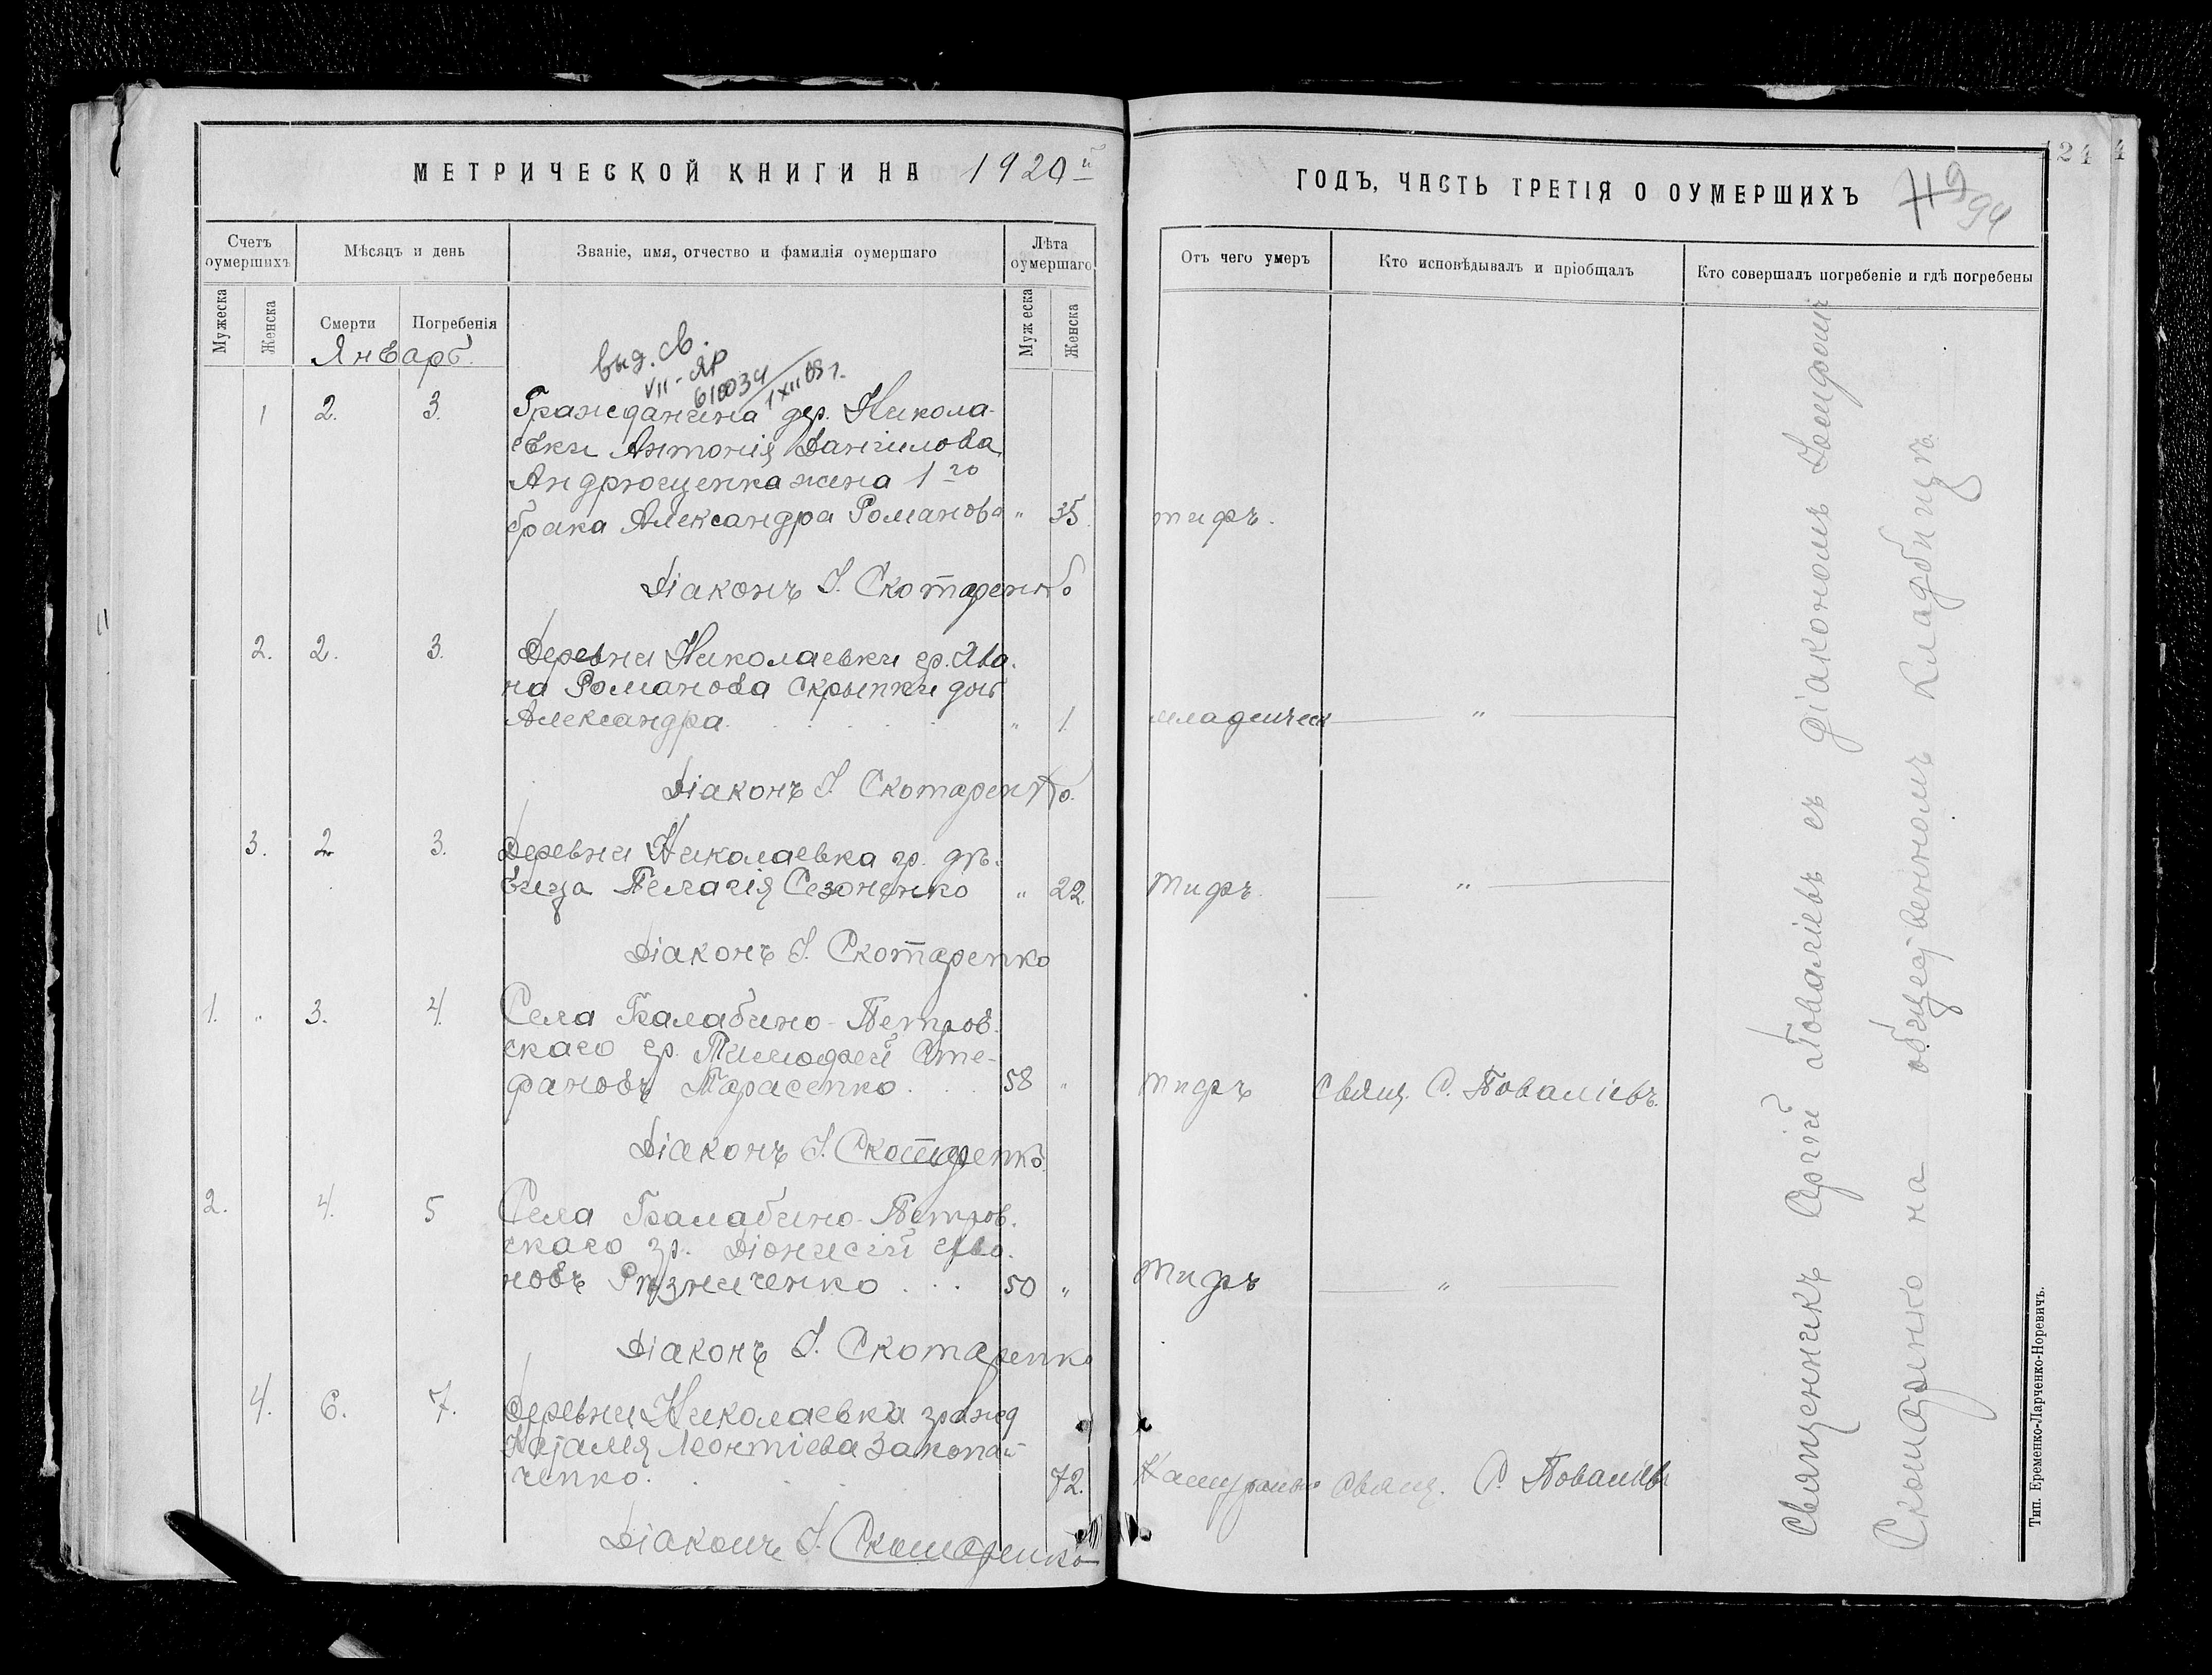 МЕТРИЧЕСКОЙ КНИГИ НА 1920 й
Счетъ оумершихъ
Мѣсяцъ и день
Званіе, имя, отчество и фамилія оумершаго
Лѣта оумершаго
Мужеска
Женска
Смерти
Погребенія
Мужеска
Женска
Январь.
выд. св.
VII-ЯР
610034
1 XII 1 2. 3. Гражданина дер. Никола-
евки Антонія Данилова
Андрющенка жена 1го
брака Александра Романова " 35.
Діаконъ І. Скотаренко
2. 2. 3. Деревни Николаевки гр. Ива-
на Романова Скрыпки дочь
Александра. " 1.
Діаконъ І. Скотаренко.
3. 2 3. Деревни Николаевка гр. дѣ-
вица Пелагія Сезоненко " 22.
Діаконъ І. Скотаренко
1. " 3. 4. Села Балабино-Петров-
скаго гр. Тимофей Сте-
фановъ Тарасенко. 58 "
Діаконъ І. Скотаренко.
2. 4. 5 Села Балабино-Петров-
скаго гр. Діонисій Ива-
новъ Рѣзниченко . . . 50 "
Діаконъ І. Скотаренко
4. 6. 7. Деревни Николаевка гражд
Наталія Леонтіева Закопай-
ченко. 72.
Діаконъ І. Скотаренко
ГОДЪ, ЧАСТЬ ТРЕТІЯ О ОУМЕРШИХЪ
124
94
Отъ чего умеръ
Кто исповѣдывалъ и пріобщалъ
Кто совершалъ погребеніе и гдѣ погребены
тифъ.
младенческ "
Тифъ "
Тифъ Свящ. С. Поваліевъ.
Тифъ "
Натурально Свящ. С. Поваліевъ
Священникъ Сергій Поваліевъ съ діакономъ
Скотаренко на общественномъ кладбищѣ.
Тип. Еременко-Ларченко-Норевичъ.